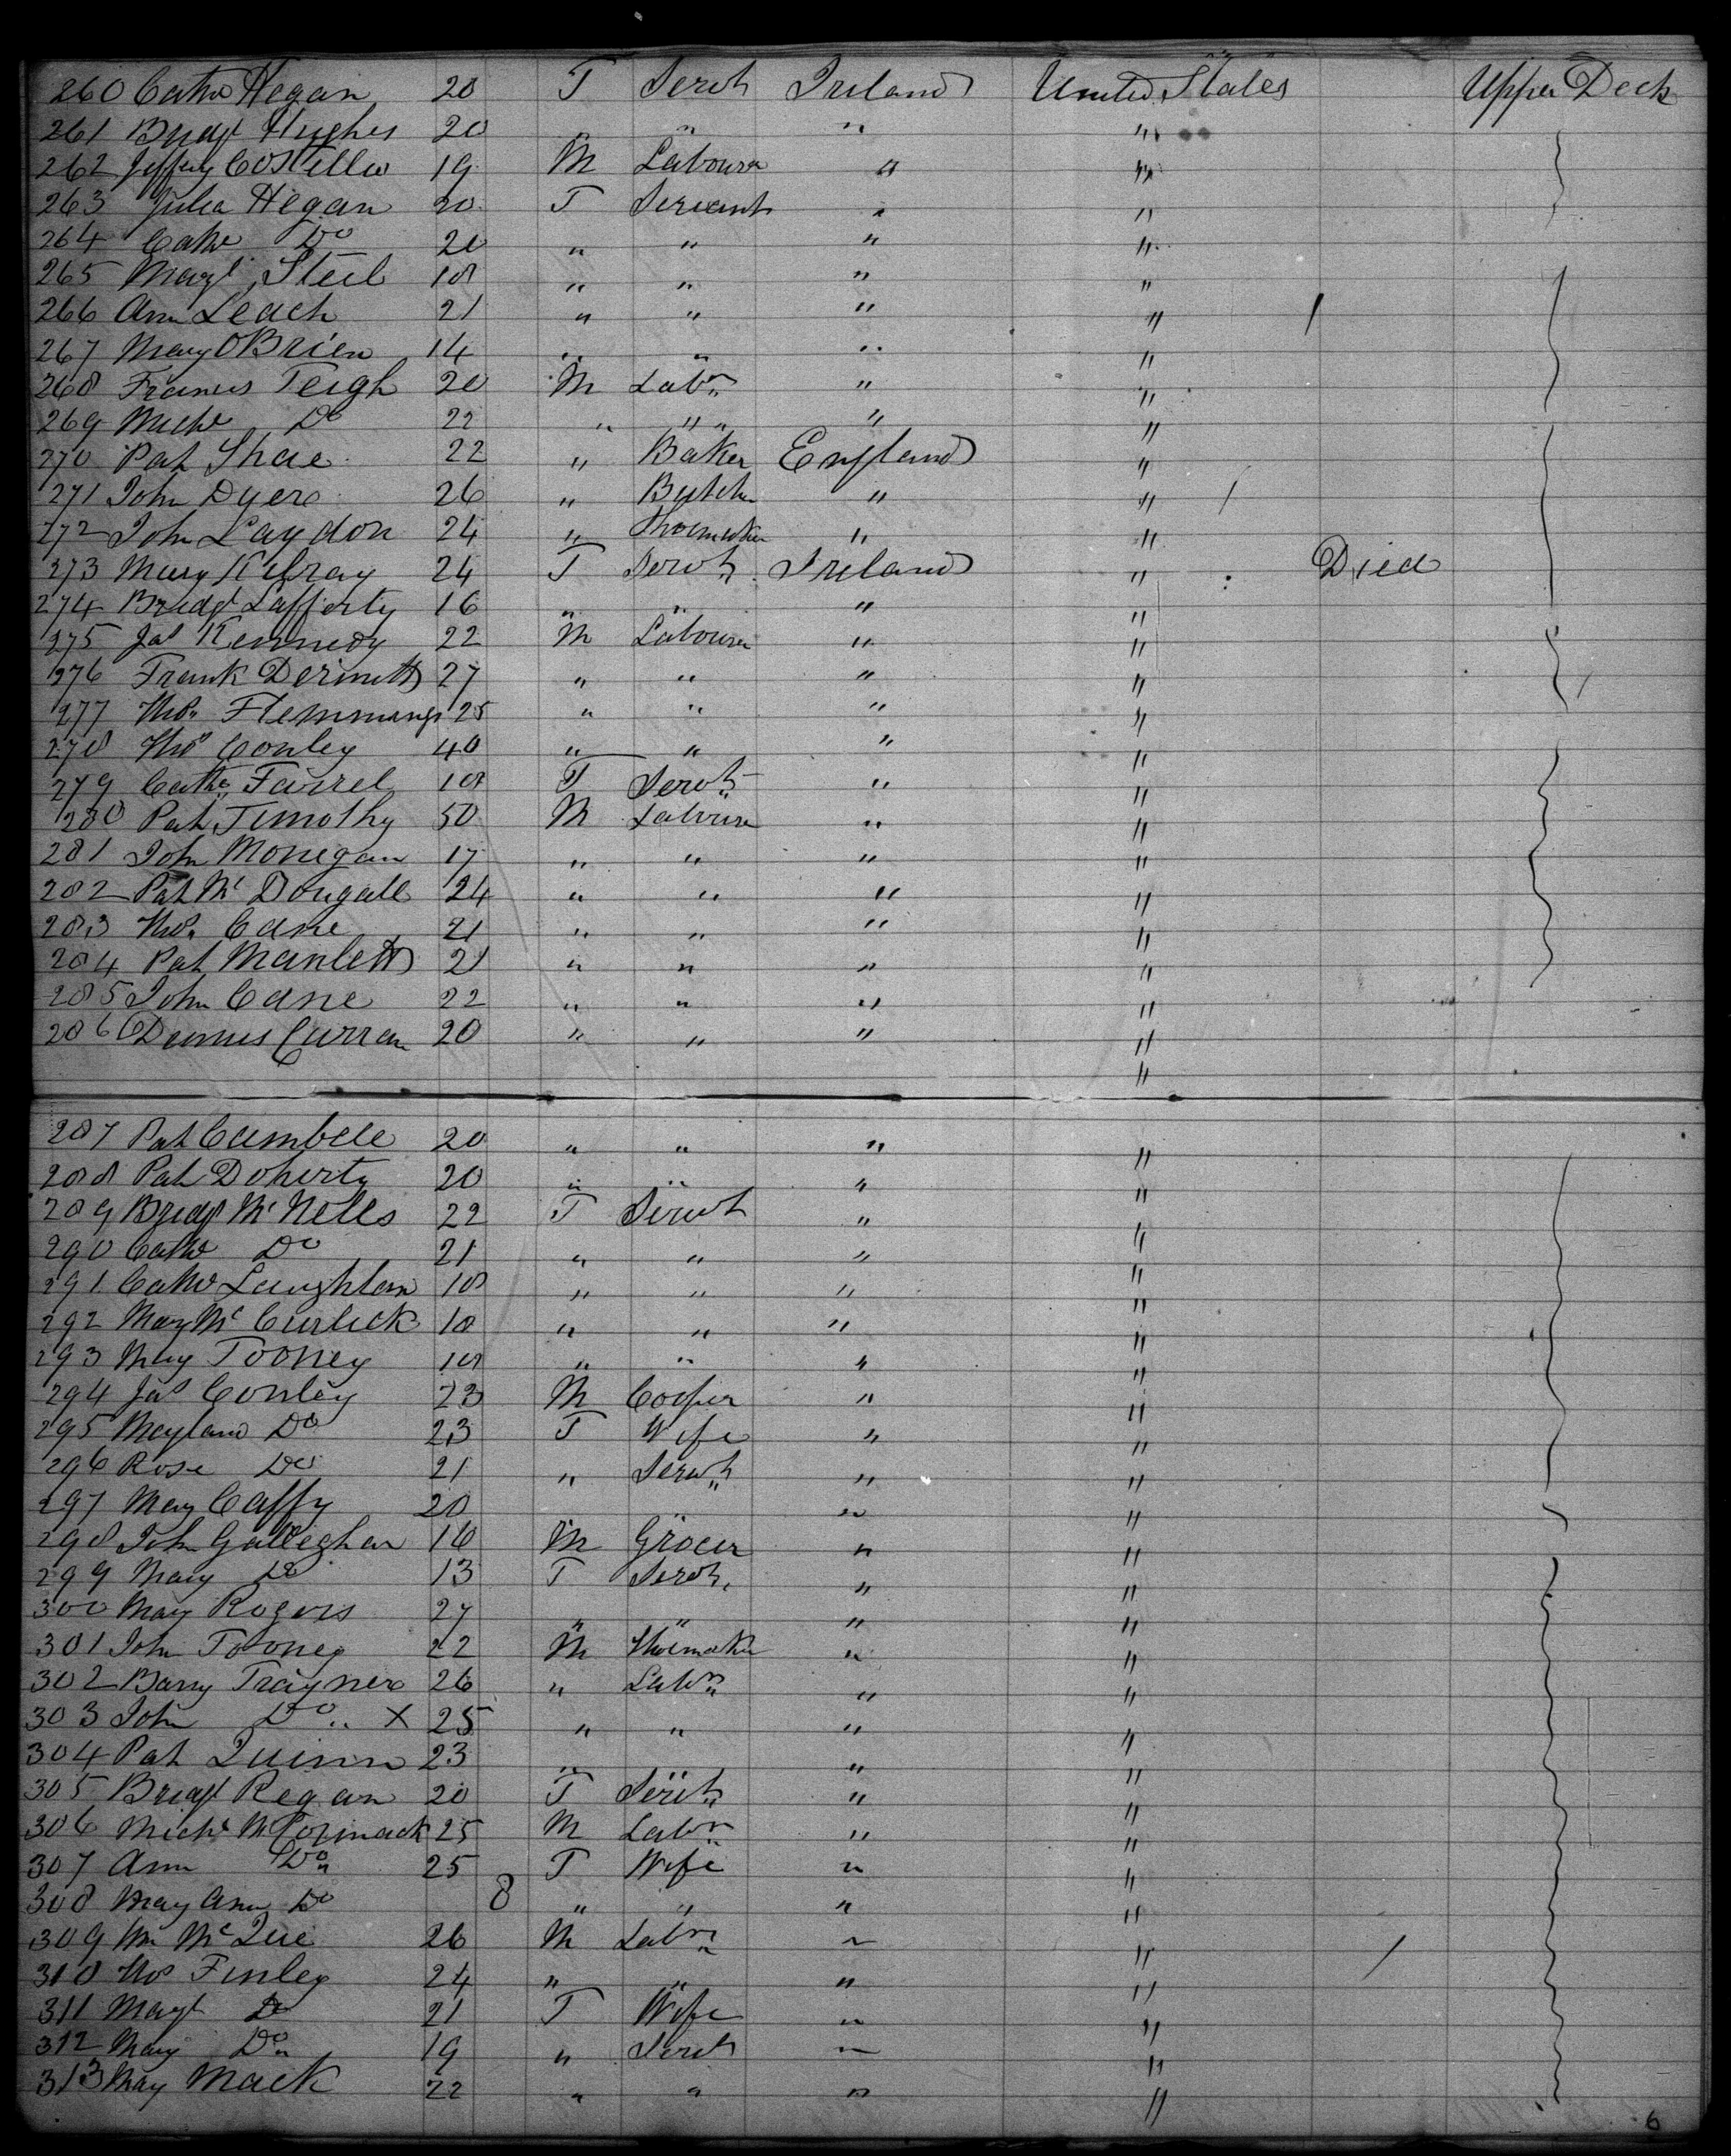 260 Cathe Hegan 20 F Servt Ireland United States Upper Deck
261 Bridgt Hughes 20 " " " "
262 Jeffery Costillo 19 M Labourer " "
263 Julia Hegan 20 F Servant " "
264 Cathe Do 20 " " " "
265 Margt Steel 18 " " " "
266 Ann Leach 21 " " " "
267 Mary OBrien 14 " " " "
268 Francis Teigh 20 M Labr " "
269 Miche Do 22 " " " "
270 Pat Shae 22 " Baker England "
271 John Dyer 26 " Butcher " "
272 John Laydon 24 " Shoemaker " "
273 Mary 24 F Servt Ireland " Died
274 Bridgt Lafferty 16 " " " "
275 Jas Kennedy 22 M Labourer " "
276 Frank Dermott 27 " " " "
277 Thos Flemmings 25 " " " "
278 Thos Conley 40 " " " "
279 Cathe Farrel 18 F Servt " "
280 Pat Timothy 50 M Labourer " "
281 John Monegan 17 " " " "
282 Pat Mc Dougall 24 " " " "
283 Thos Cane 21 " " " "
284 Pat Manlett 21 " " " "
285 John Cane 22 " " " "
286 Dennis Curran 20 " " " "
"
287 Pat Cambell 20 " " " "
288 Pat Doherty 20 " " " "
289 Bridgt Mc Nells 22 F Servt " "
290 Cathe Do 21 " " " "
291 Cathe Laughlan 18 " " " "
292 Mary Mc Curlick 18 " " " "
293 Mary Tooney 18 " " " "
294 Jas Conley 23 M Cooper " "
295 Do 23 F Wife " "
296 Rose Do 21 " Servt " "
297 Mary Caffy 20 " " " "
298 John Galleghar 16 M Grocer " "
299 Mary Do 13 F Servt " "
300 Mary Rogers 27 " " " "
301 John Tooney 22 M Shoemaker " "
302 Barny Trayner 26 " Labr " "
303 John Do X 25 " " " "
304 Pat Quinn 23 " " " "
305 Bridgt Regan 20 F Servt " "
306 Miche McCormack 25 M Labr " "
307 Ann Do 25 F Wife " "
308 Mary Ann Do 8 " " " "
309 Wm McQue 26 M Labr " "
310 Thos Finley 24 " " " "
311 Margt Do 21 F Wife " "
312 Mary Do 19 " Servt " "
313 Mary Mack 22 " " " "
6